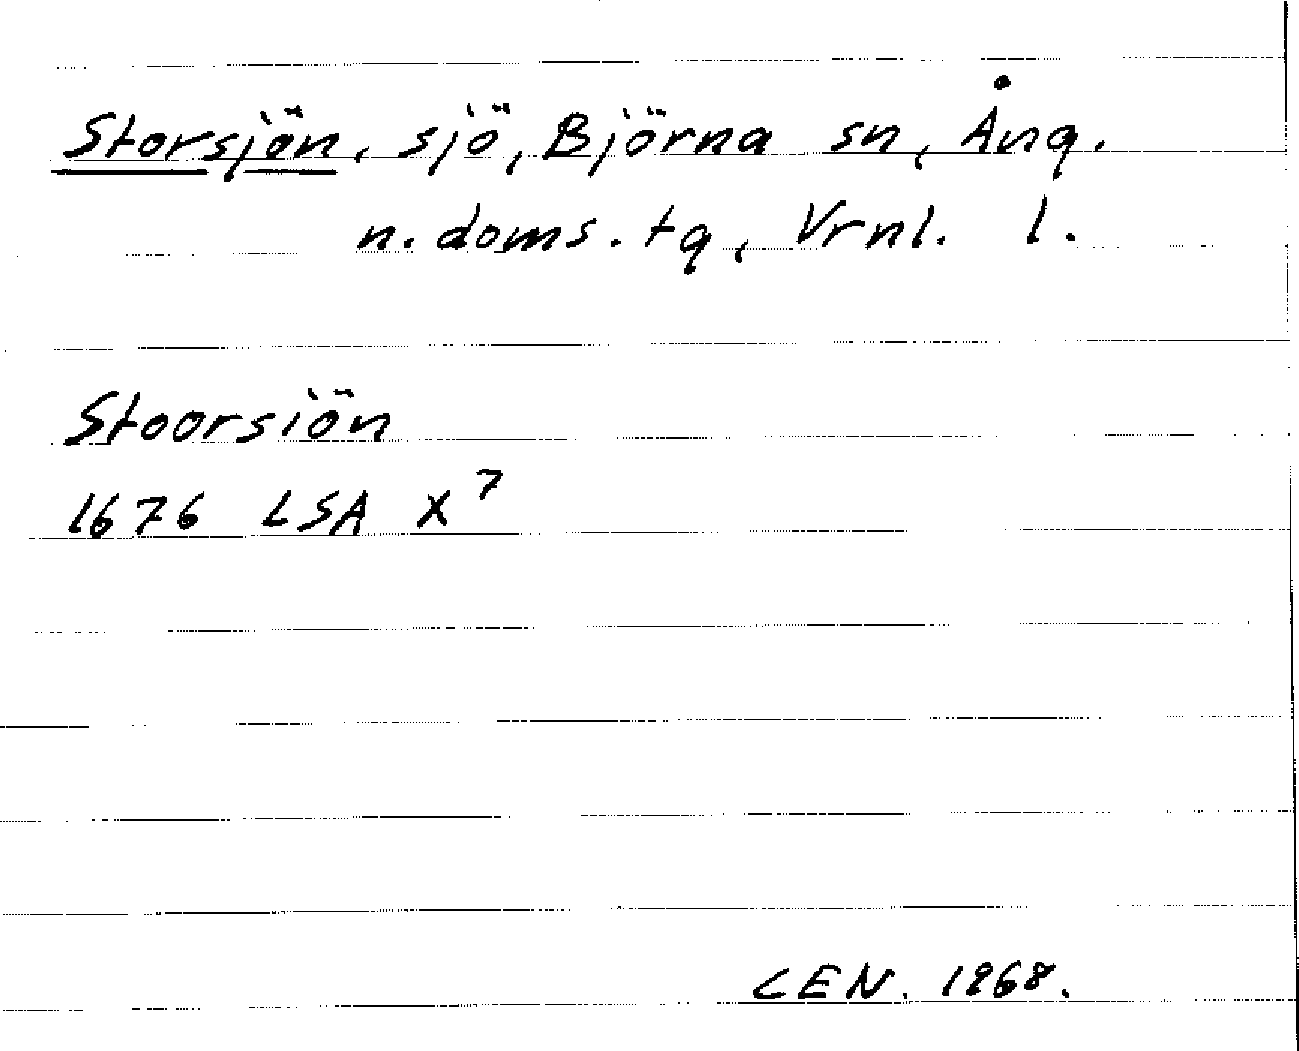 Storsjön, sjö, Björna sn, Ång.
n. doms. tg, Vrnl. l.
Stoorsiön
1676 LSA X⁷
CEN. 1968.